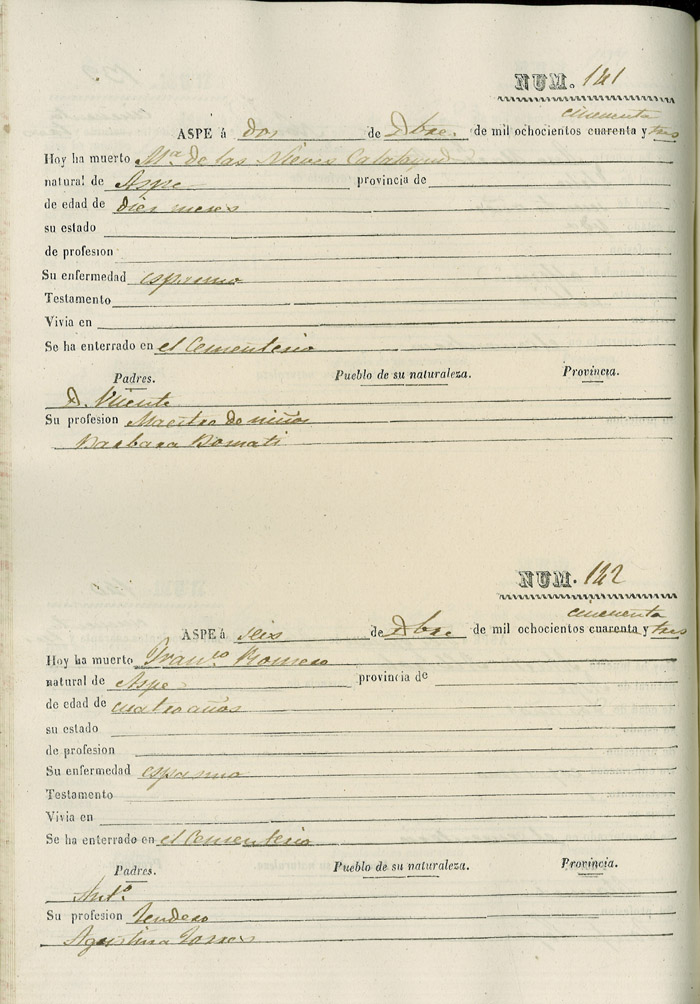 NUM. 141
cincuenta
ASPE á dos de Dbre. de mil ochocientos cuarenta y tres
Hoy ha muerto Mª de las Nieves Calatayud
natural de Aspe provincia de
de edad de diez meses
su estado
de profesion
Su enfermedad espasmo
Testamento
Vivia en
Se ha enterrado en el Cementerio
Padres. Pueblo de su naturaleza. Provincia.
D. Vicente
Su profesion Maestro de niños
Barbara Bomati
NUM. 142
cincuenta
ASPE á seis de Dbre. de mil ochocientos cuarenta y tres
Hoy ha muerto Franco Romero
natural de Aspe provincia de
de edad de cuatro años
su estado
de profesion
Su enfermedad espasmo
Testamento
Vivia en
Se ha enterrado en el Cementerio
Padres. Pueblo de su naturaleza. Provincia.
Antº
Su profesion tendero
Agustina Torres